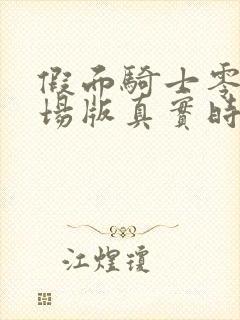 假面騎士零
場版真實時
江煌瓊